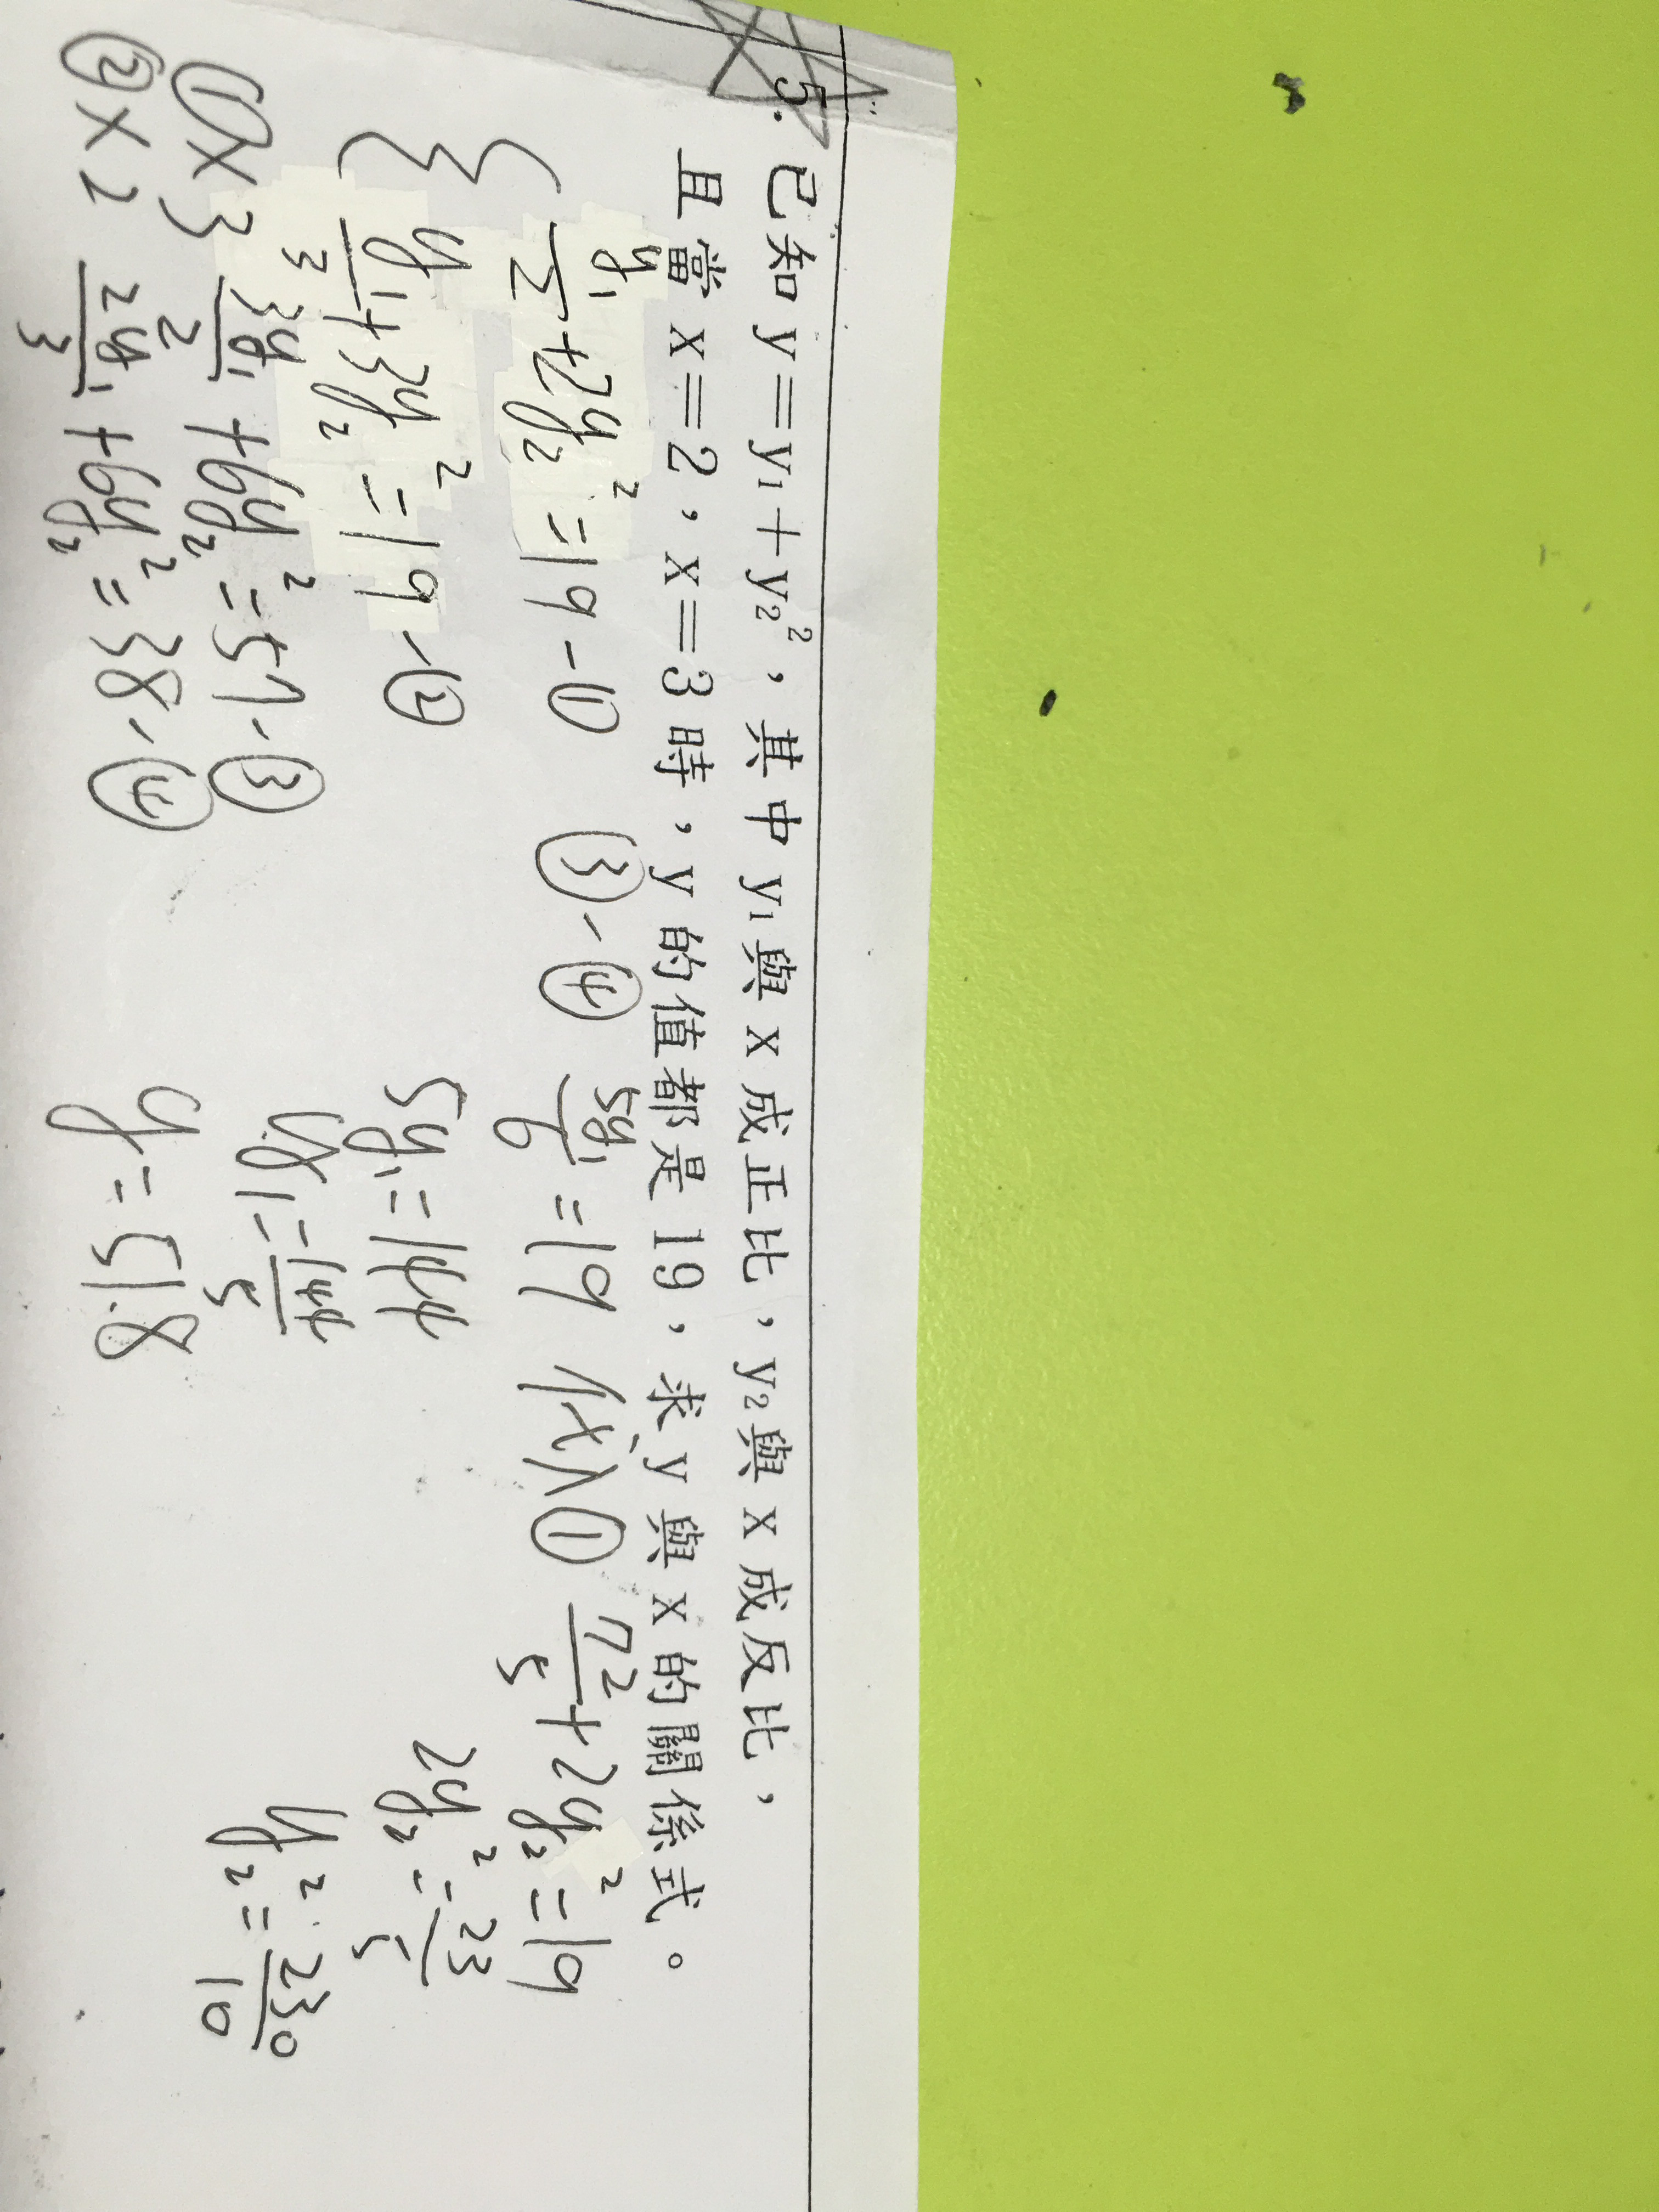 5. 已知 y＝y₁＋y₂²，其中 y₁與 x 成正比，y₂與 x 成反比，
且當 x＝2，x＝3 時，y 的值都是 19，求 y 與 x 的關係式。
{ y₁/2 + 2y₂² = 19 - ①
y₁/3 + 3y₂² = 19 - ②
①×3 3y₁/2 + 6y₂² = 57 - ③
②×2 2y₁/3 + 6y₂² = 38 - ④
③ - ④ 5y₁/6 = 19
5y₁ = 144
y₁ = 144/5
y = 151.8
代入① 72/5 + 2y₂² = 19
2y₂² = 23/5
y₂² = 230/10